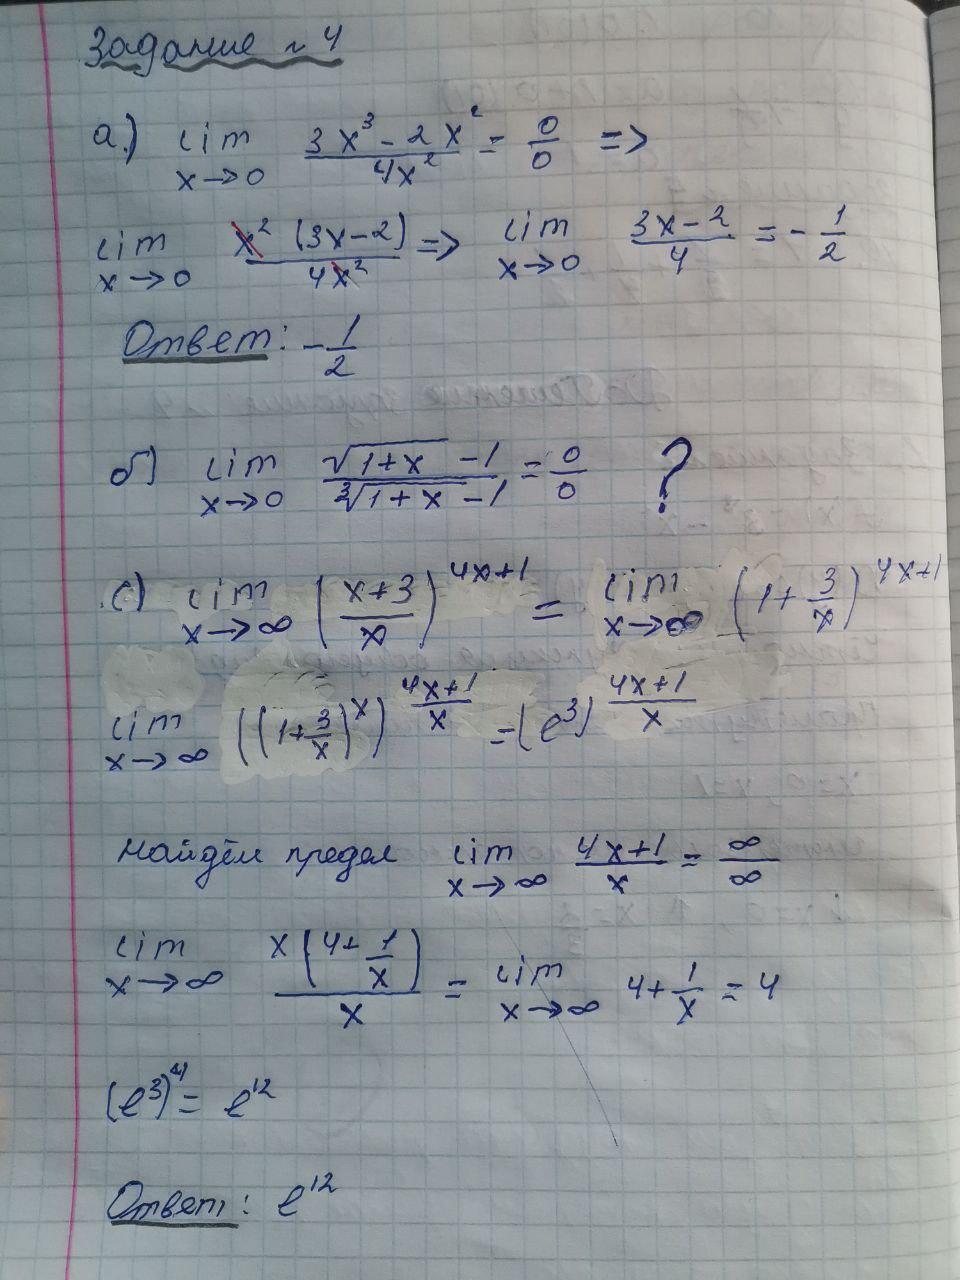 Задание № 4
а.) lim x→0 (3x³ - 2x²)/(4x²) = 0/0 =>
lim x→0 (x² (3x-2))/(4x²) => lim x→0 (3x-2)/4 = - 1/2
Ответ: - 1/2
б) lim x→0 (√(1+x) - 1)/(∛(1+x) - 1) = 0/0 ?
с) lim x→∞ ((x+3)/x)^(4x+1) = lim x→∞ (1 + 3/x)^(4x+1)
lim x→∞ ((1+3/x)^x)^((4x+1)/x) = (e³)^((4x+1)/x)
Найдём предел lim x→∞ (4x+1)/x = ∞/∞
lim x→∞ (x(4+1/x))/x = lim x→∞ 4+1/x = 4
(e³)⁴ = e¹²
Ответ: e¹²